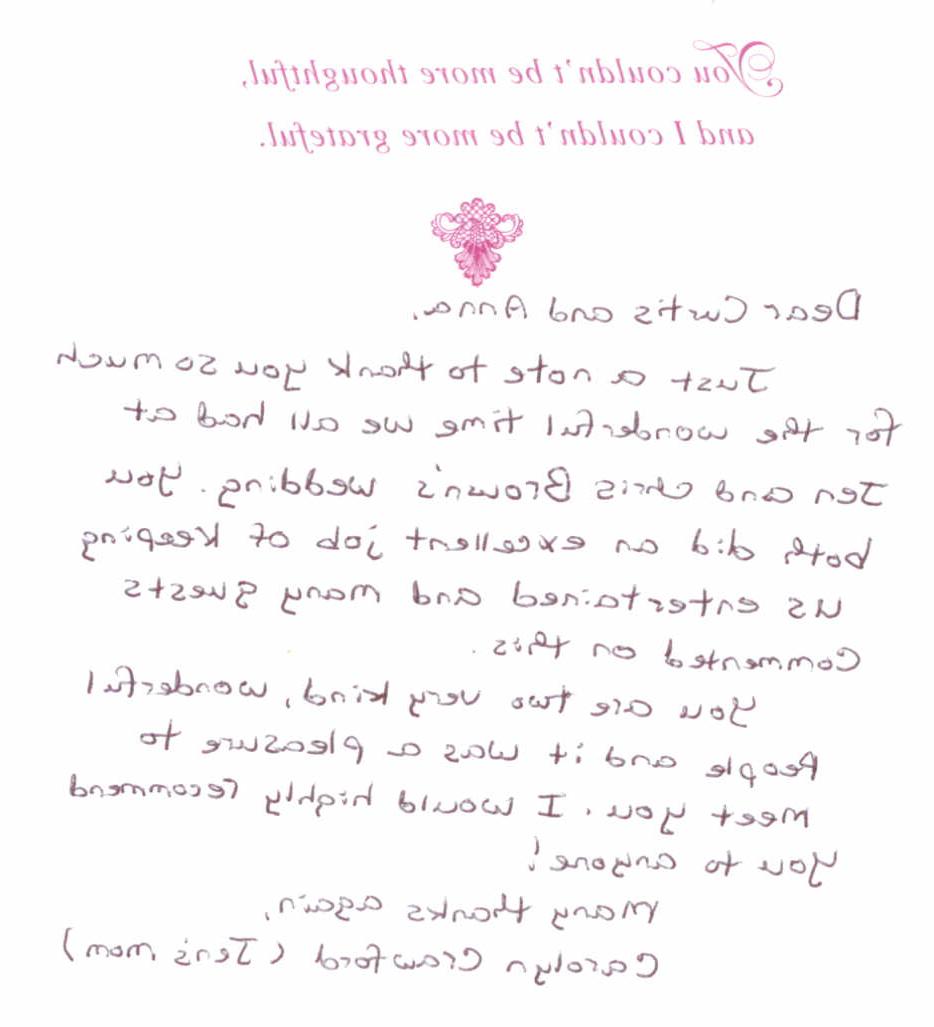 You couldn't be more thoughtful,
and I couldn't be more grateful.
Dear Curtis and Anna,
Just a note to thank you so much
for the wonderful time we all had at
Jen and Chris Brown's wedding. You
both did an excellent job of keeping
us entertained and many guests
commented on this.
You are two very kind, wonderful
people and it was a pleasure to
meet you. I would highly recommend
you to anyone!
Many thanks again,
Carolyn Crawford (Jen's mom)